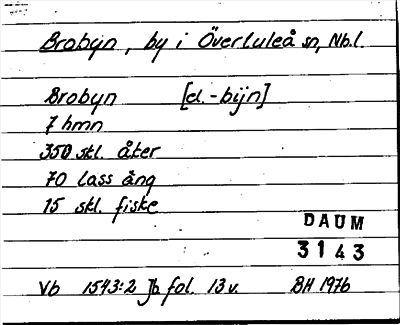 Brobyn, by i Överluleå sn, Nb.l.
Brobyn [el. -bijn]
7 hmn
350 skl. åker
70 lass äng
15 skl. fiske
DAUM
3143
Vb 1543:2 Jb fol. 13 v. BH 1976